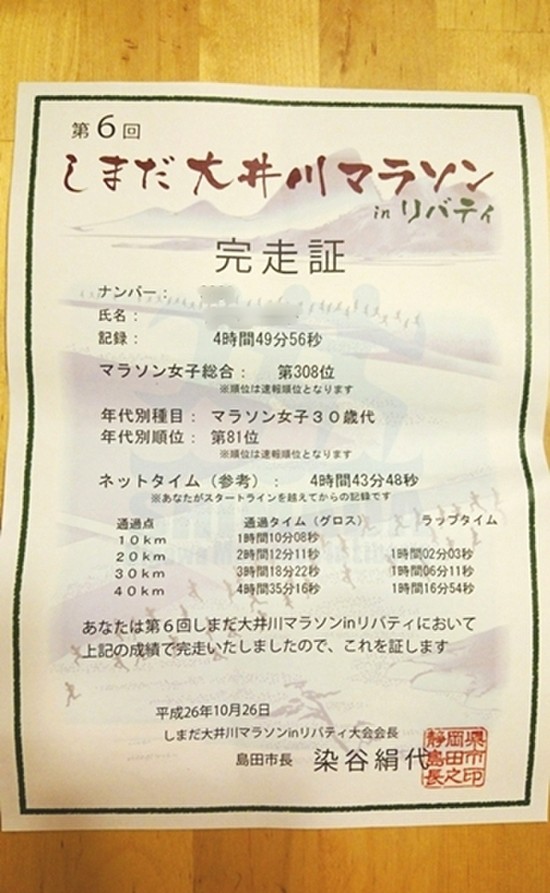 第6回
しまだ大井川マラソン
in リバティ
完走証
ナンバー：
氏名：
記録： 4時間49分56秒
マラソン女子総合： 第308位
※順位は速報順位となります
年代別種目： マラソン女子３０歳代
年代別順位： 第81位
※順位は速報順位となります
ネットタイム（参考）： 4時間43分48秒
※あなたがスタートラインを越えてからの記録です
通過点 通過タイム（グロス） ラップタイム
１０ｋｍ 1時間10分08秒
２０ｋｍ 2時間12分11秒 1時間02分03秒
３０ｋｍ 3時間18分22秒 1時間06分11秒
４０ｋｍ 4時間35分16秒 1時間16分54秒
あなたは第６回しまだ大井川マラソンinリバティにおいて
上記の成績で完走いたしましたので、これを証します
平成26年10月26日
しまだ大井川マラソンinリバティ大会会長
島田市長 染谷絹代
静岡県島田市長之印